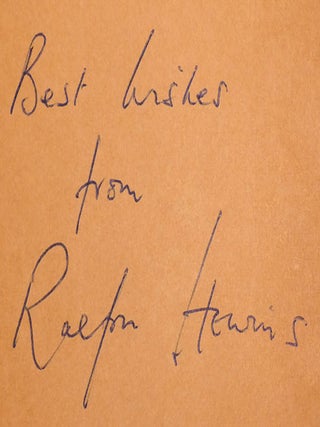 Best Wishes
from
Ralph Hewins